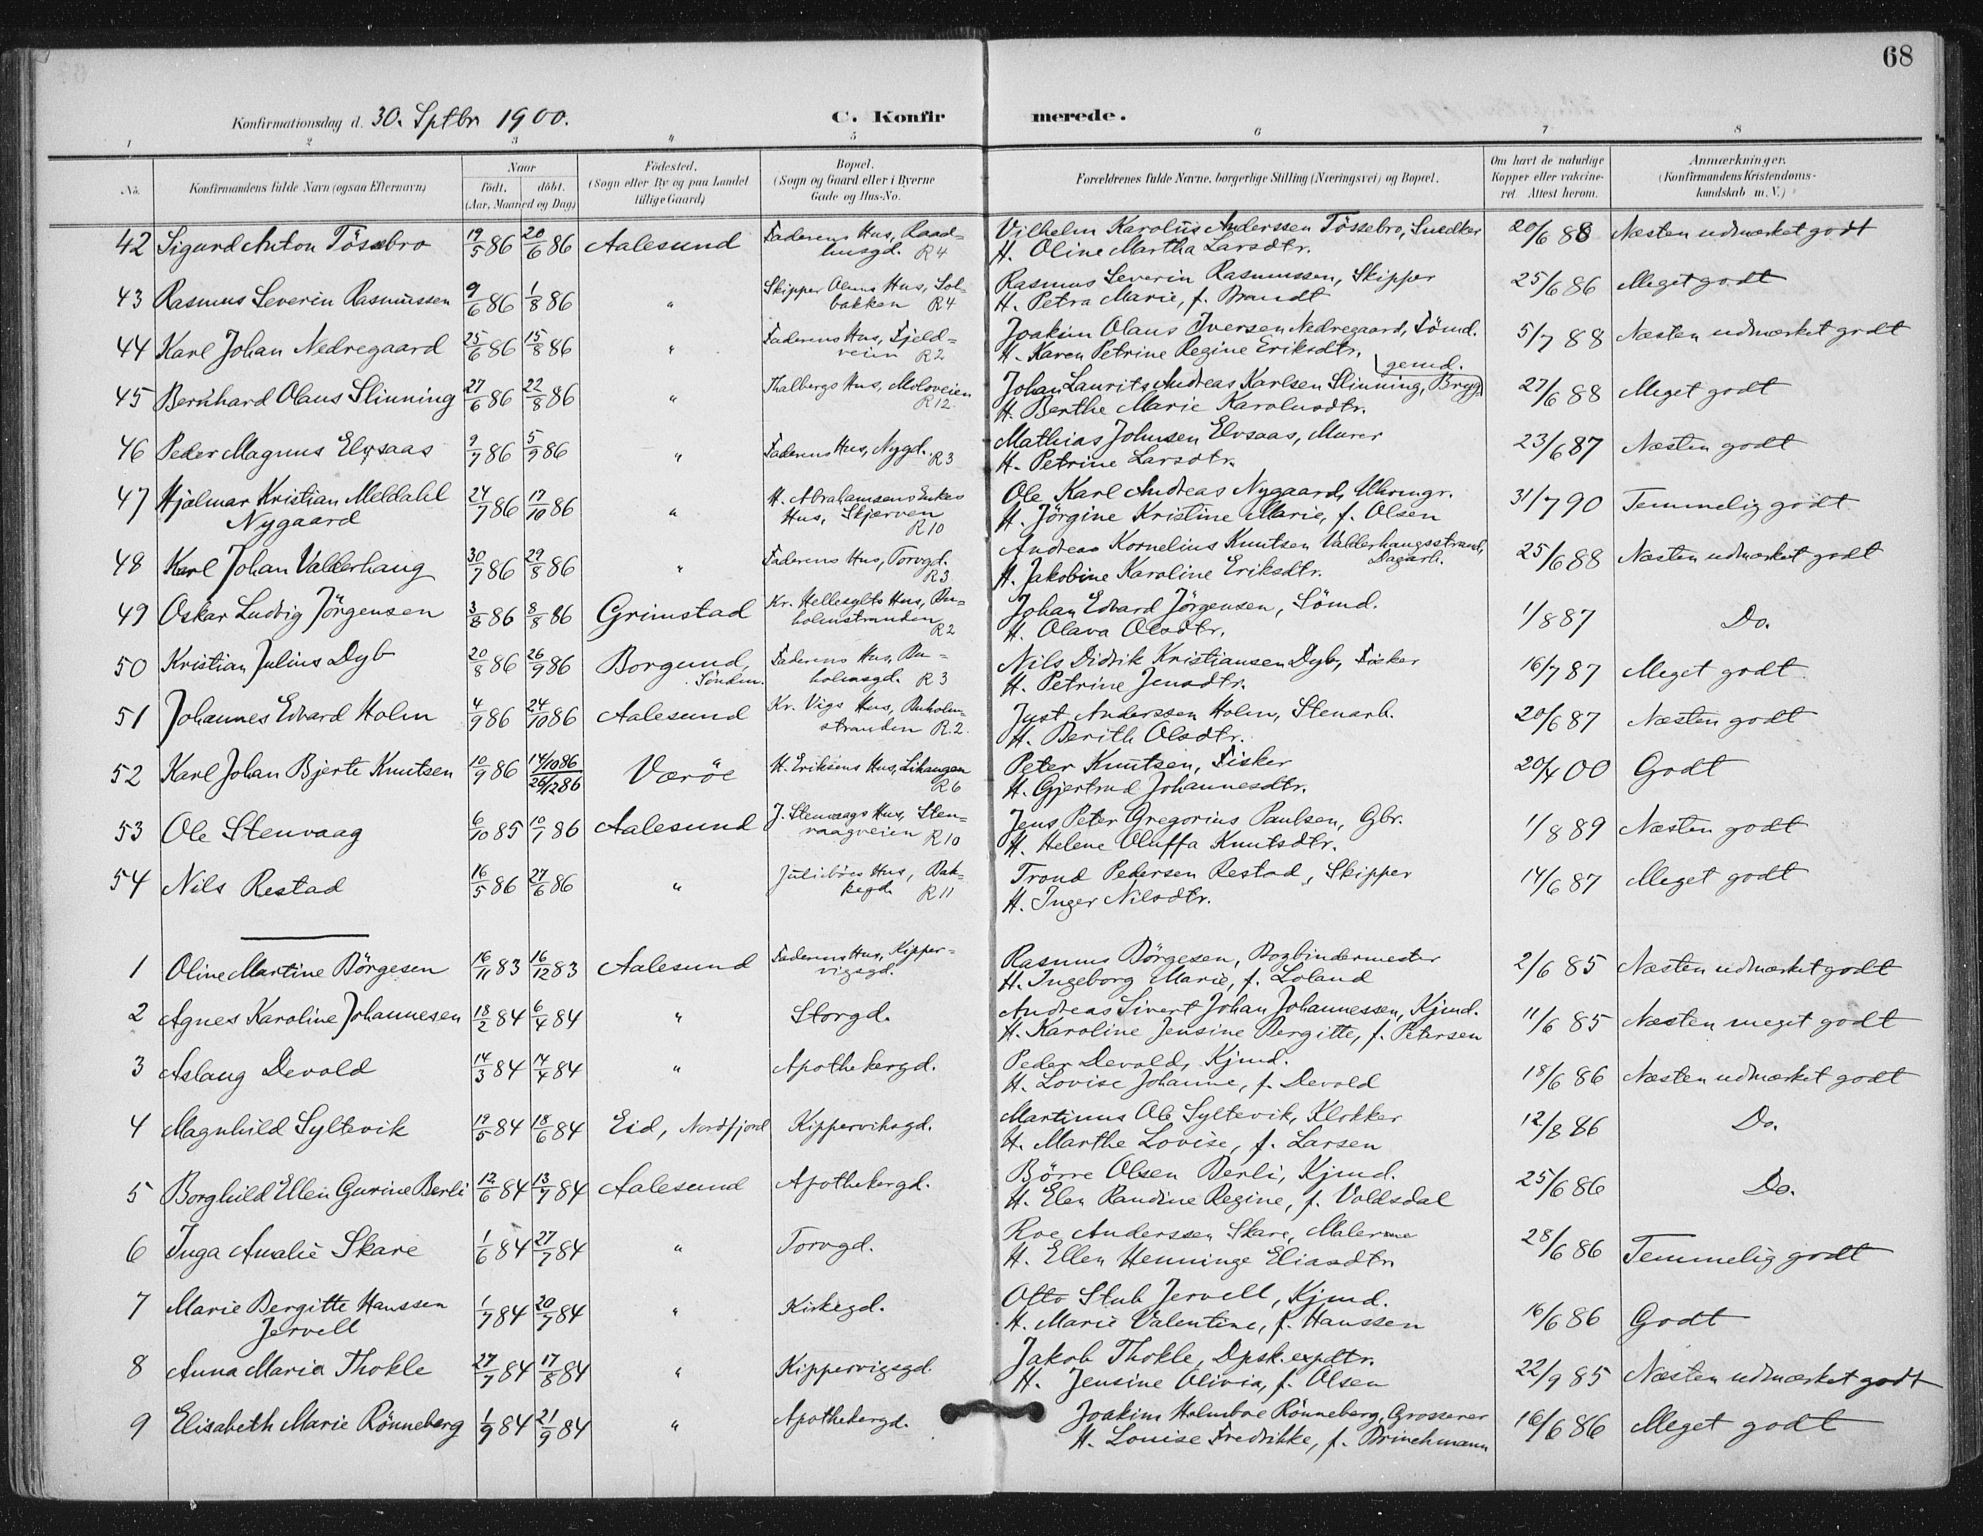 68
Konfirmationsdag d. 30. Sptbr 1900.
C. Konfirmerede.
1 2 3 4 5 6 7 8
No. | Konfirmandens fulde Navn (ogsaa Efternavn) | Naar født, døbt. (Aar, Maaned og Dag) | Fødested. (Sogn eller By og paa Landet tillige Gaard) | Bopæl. (Sogn og Gaard eller i Byerne Gade og Hus-No. | Forældrenes fulde Navne, borgerlige Stilling (Næringsvei) og Bopæl. | Om havt de naturlige Kopper eller vakcineret. Attest herom. | Anmærkninger. (Konfirmandens Kristendomskundskab m. V.)
42 Sigurd Anton Tösse­bro 19/5 86 20/6 86 Aalesund Faderens Hus, Raad= Vilhelm Karolus Anderssen Tössebro, Snedker 20/6 88 Næsten udmærket godt
husgd. R4 H. Oline Martha Larsdtr.
43 Rasmus Severin Rasmussen 9/6 86 1/8 86 " Skipper Hus, Sol= Rasmus Severin Rasmussen, Skipper 25/6 86 Meget godt
bakken R4 H. Petra Marie, f. Brandt
44 Karl Johan Nedregaard 25/6 86 15/8 86 " Faderens Hus, Fjeld= Joakim Olaus Iversen Nedregaard, Tömd. 5/7 88 Næsten udmærket godt
veien R2 H. Karen Petrine Regine Eriksdtr.
45 Bernhard Olaus Slinning 27/6 86 22/8 86 " Thalbergs Hus, Moloveien Johan Laurits Andreas Karlsen Slinning, Bryggemd. 27/6 88 Meget godt
R12 H. Berthe Marie Karolusdtr.
46 Peder Magnus Elvsaas 9/7 86 5/9 86 " Faderens Hus, Nygd. R3 Mathias Johnsen Elvsaas, Murer 23/6 87 Næsten godt
H. Petrine Larsdtr.
47 Hjalmar Kristian Meldahl 24/7 86 17/10 86 " H. Abrahamsens Enkes Ole Karl Andreas Nygaard, Uhrmgr. 31/7 90 Temmelig godt
Nygaard Hus, Skjærven R10 H. Jörgine Kristine Marie, f. Olsen
48 Karl Johan Valderhaug 30/7 86 29/8 86 " Faderens Hus, Torvgd. Andreas Kornelius Knutsen Valderhaugsstrand, Dagarb. 25/6 88 Næsten udmærket godt
R3 H. Jakobine Karoline Eriksdtr.
49 Oskar Ludvig Jörgensen 3/8 86 8/8 86 Grimstad Kr. Hellesylts Hus, Bu= Johan Edvard Jörgensen, Sömd. 1/8 87 Do.
holmstranden R2 H. Olava Olsdtr.
50 Kristian Julius Dyb 20/8 86 26/9 86 Borgund, Faderens Hus, Bu= Nils Didrik Kristiansen Dyb, Fisker 16/7 87 Meget godt
Söndm. holmsgd. R3 H. Petrine Jensdtr.
51 Johannes Edvard Holm 4/9 86 24/10 86 Aalesund Kr. Vigs Hus, Buholm= Just Anderssen Holm, Stenarb. 20/6 87 Næsten godt
stranden R.2. H. Berith Olsdtr.
52 Karl Johan Bjerte Knutsen 10/9 86 14/10 86 Værøe H. Eriksens Hus, Lihaugen Peter Knutsen, Fisker 20/4 00 Godt
26/12 86 R6 H. Gjertrud Johannesdtr.
53 Ole Stenvaag 6/10 85 10/1 86 Aalesund J. Stenvaags Hus, Sten= Jens Peter Gregorius Paulsen, Gbr. 1/8 89 Næsten godt
vaagveien R10 H. Helene Oluffa Knutsdtr.
54 Nils Restad 16/5 86 27/6 86 " Juliebös Hus, Bak= Trond Pedersen Restad, Skipper 14/6 87 Meget godt
kegd. R11 H. Inger Nilsdtr.
1 Oline Martine Börgesen 16/11 83 16/12 83 Aalesund Faderens Hus, Kipper= Rasmus Börgesen, Bogbindermester 2/6 85 Næsten udmærket godt
vigsgd. H. Ingeborg Marie, f. Loland
2 Agnes Karoline Johannesen 18/2 84 6/4 84 " Storgd. Andreas Sivert Johan Johannessen, Kjmd. 11/6 85 Næsten meget godt
H. Karoline Jensine Bergitte, f. Petersen
3 Aslaug Devold 14/3 84 14/4 84 " Apothekergd. Peder Devold, Kjmd. 18/6 86 Næsten udmærket godt
H. Lovise Johanne, f. Devold
4 Magnhild Syltevik 19/5 84 18/6 84 Eid, Nordfjord Kipperviksgd. Martinus Ole Syltevik, Klokker 12/8 86 Do.
H. Marthe Lovise, f. Larsen
5 Borghild Ellen Gurine Berli 12/6 84 13/7 84 Aalesund Apothekergd. Börre Olsen Berli, Kjmd. 25/6 86 Do.
H. Elen Randine Regine, f. Voldsdal
6 Inga Amalie Skare 1/6 84 27/7 84 " Torvgd. Roe Anderssen Skare, Malerme 28/6 86 Temmelig godt
H. Ellen Henninge Eliasdtr
7 Marie Bergitte Hanssen 1/7 84 20/7 84 " Kirkegd. Otto Stub Jervell, Kjmd. 16/6 86 Godt
Jervell H. Marie Valentine, f. Hanssen
8 Anna Maria Thokle 27/7 84 17/8 84 " Kippervigsgd. Jakob Thokle, Dpsk.expdtr. 22/9 85 Næsten udmærket godt
H. Jensine Olivia, f. Olsen
9 Elisabeth Marie Rönneberg 1/9 84 21/9 84 " Apothekergd. Joakim Holmboe Rönneberg, Grosserer 16/6 86 Meget godt
H. Louise Fredrikke, f. Brinchmann